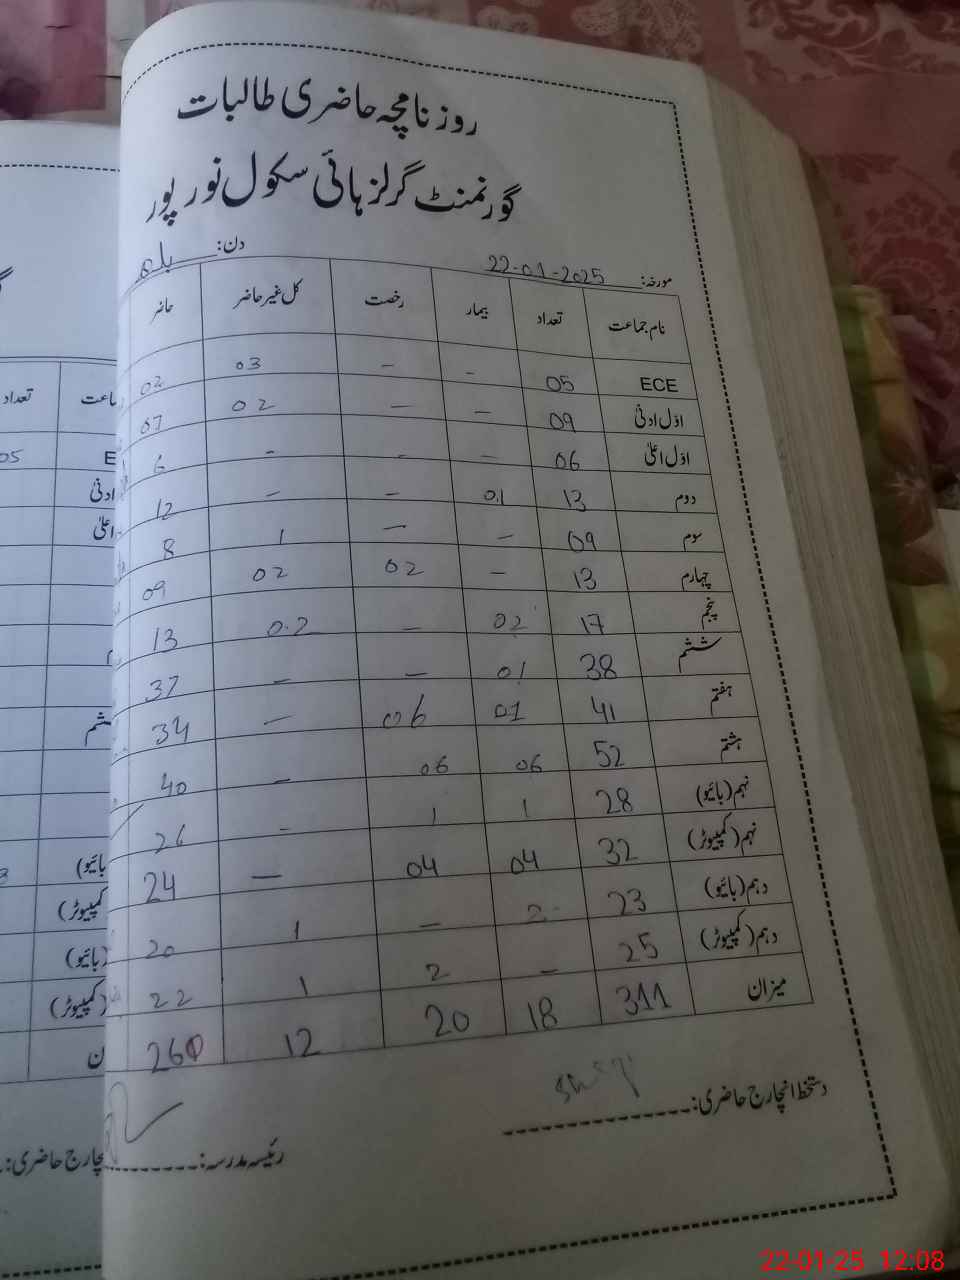 روزنامچہ حاضری طالبات
گورنمنٹ گرلز ہائی سکول نور پور
مورخہ: 22-01-2025 دن: بدھ
نام جماعت تعداد بیمار رخصت کل غیر حاضر حاضر
ECE 05 - - 03 02
اوّل ادنیٰ 09 - - 02 07
اوّل اعلیٰ 06 - - - 6
دوم 13 01 - - 12
سوم 09 - - 1 8
چہارم 13 - 02 02 09
پنجم 17 02 - 02 13
ششم 38 01 - - 37
ہفتم 41 01 06 - 34
ہشتم 52 06 06 - 40
نہم (بائیو) 28 1 1 - 26
نہم (کمپیوٹر) 32 04 04 - 24
دہم (بائیو) 23 2 - 1 20
دہم (کمپیوٹر) 25 - 2 1 22
میزان 311 18 20 12 260
دستخط انچارج حاضری:
رئیسہ مدرسہ:
تعداد
05 E
(بائیو)
(کمپیوٹر)
(بائیو)
(کمپیوٹر)
چارج حاضری:
22-01-25 12:08